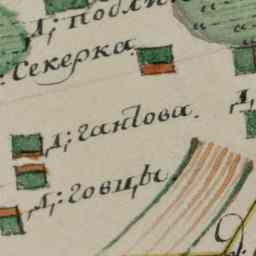 Д; Подли
: Секерка.
Д; Гантова.
Д;
Д; Говцы.